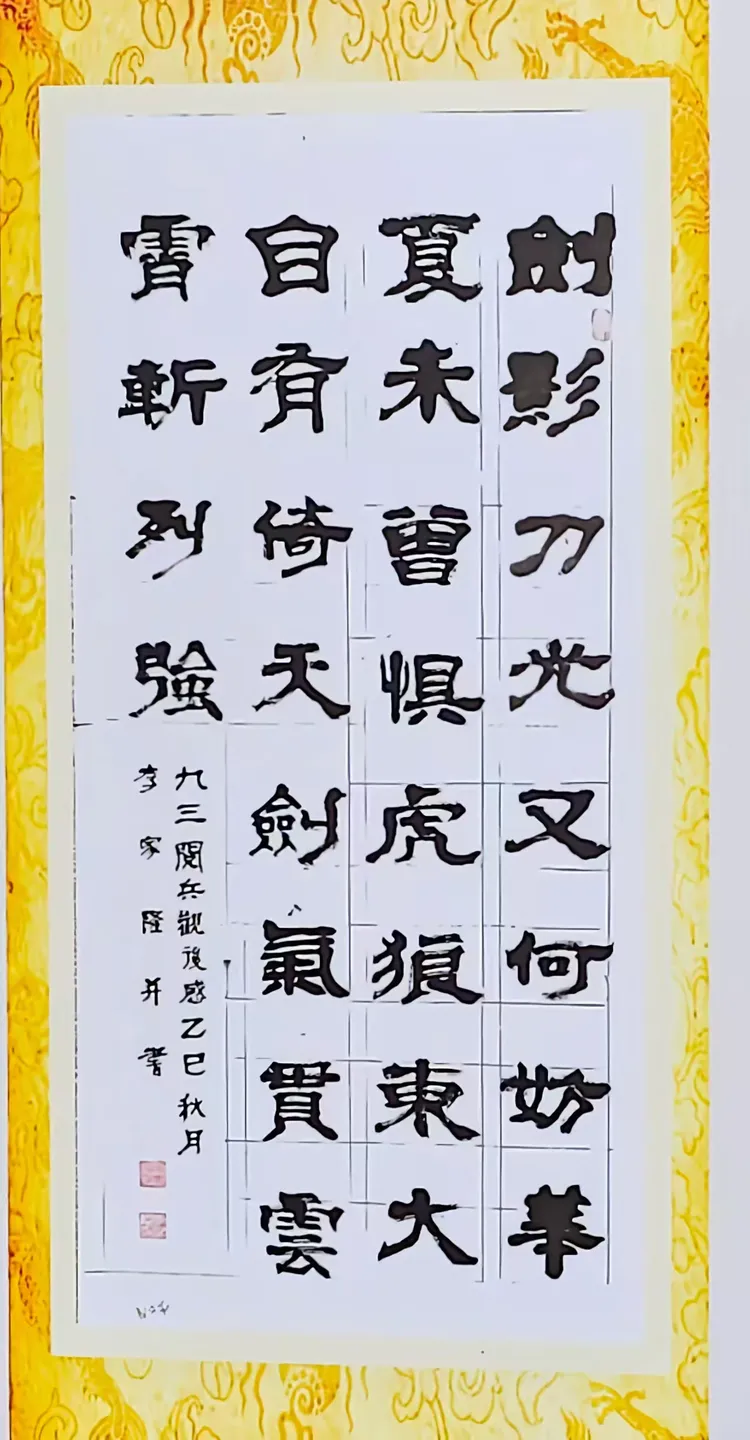 劍影刀光又何妨華
夏未曾惧虎狼東大
自有倚天劍氣貫雲
霄斬列強
九三閱兵觀後感乙巳秋月
李家隆并書